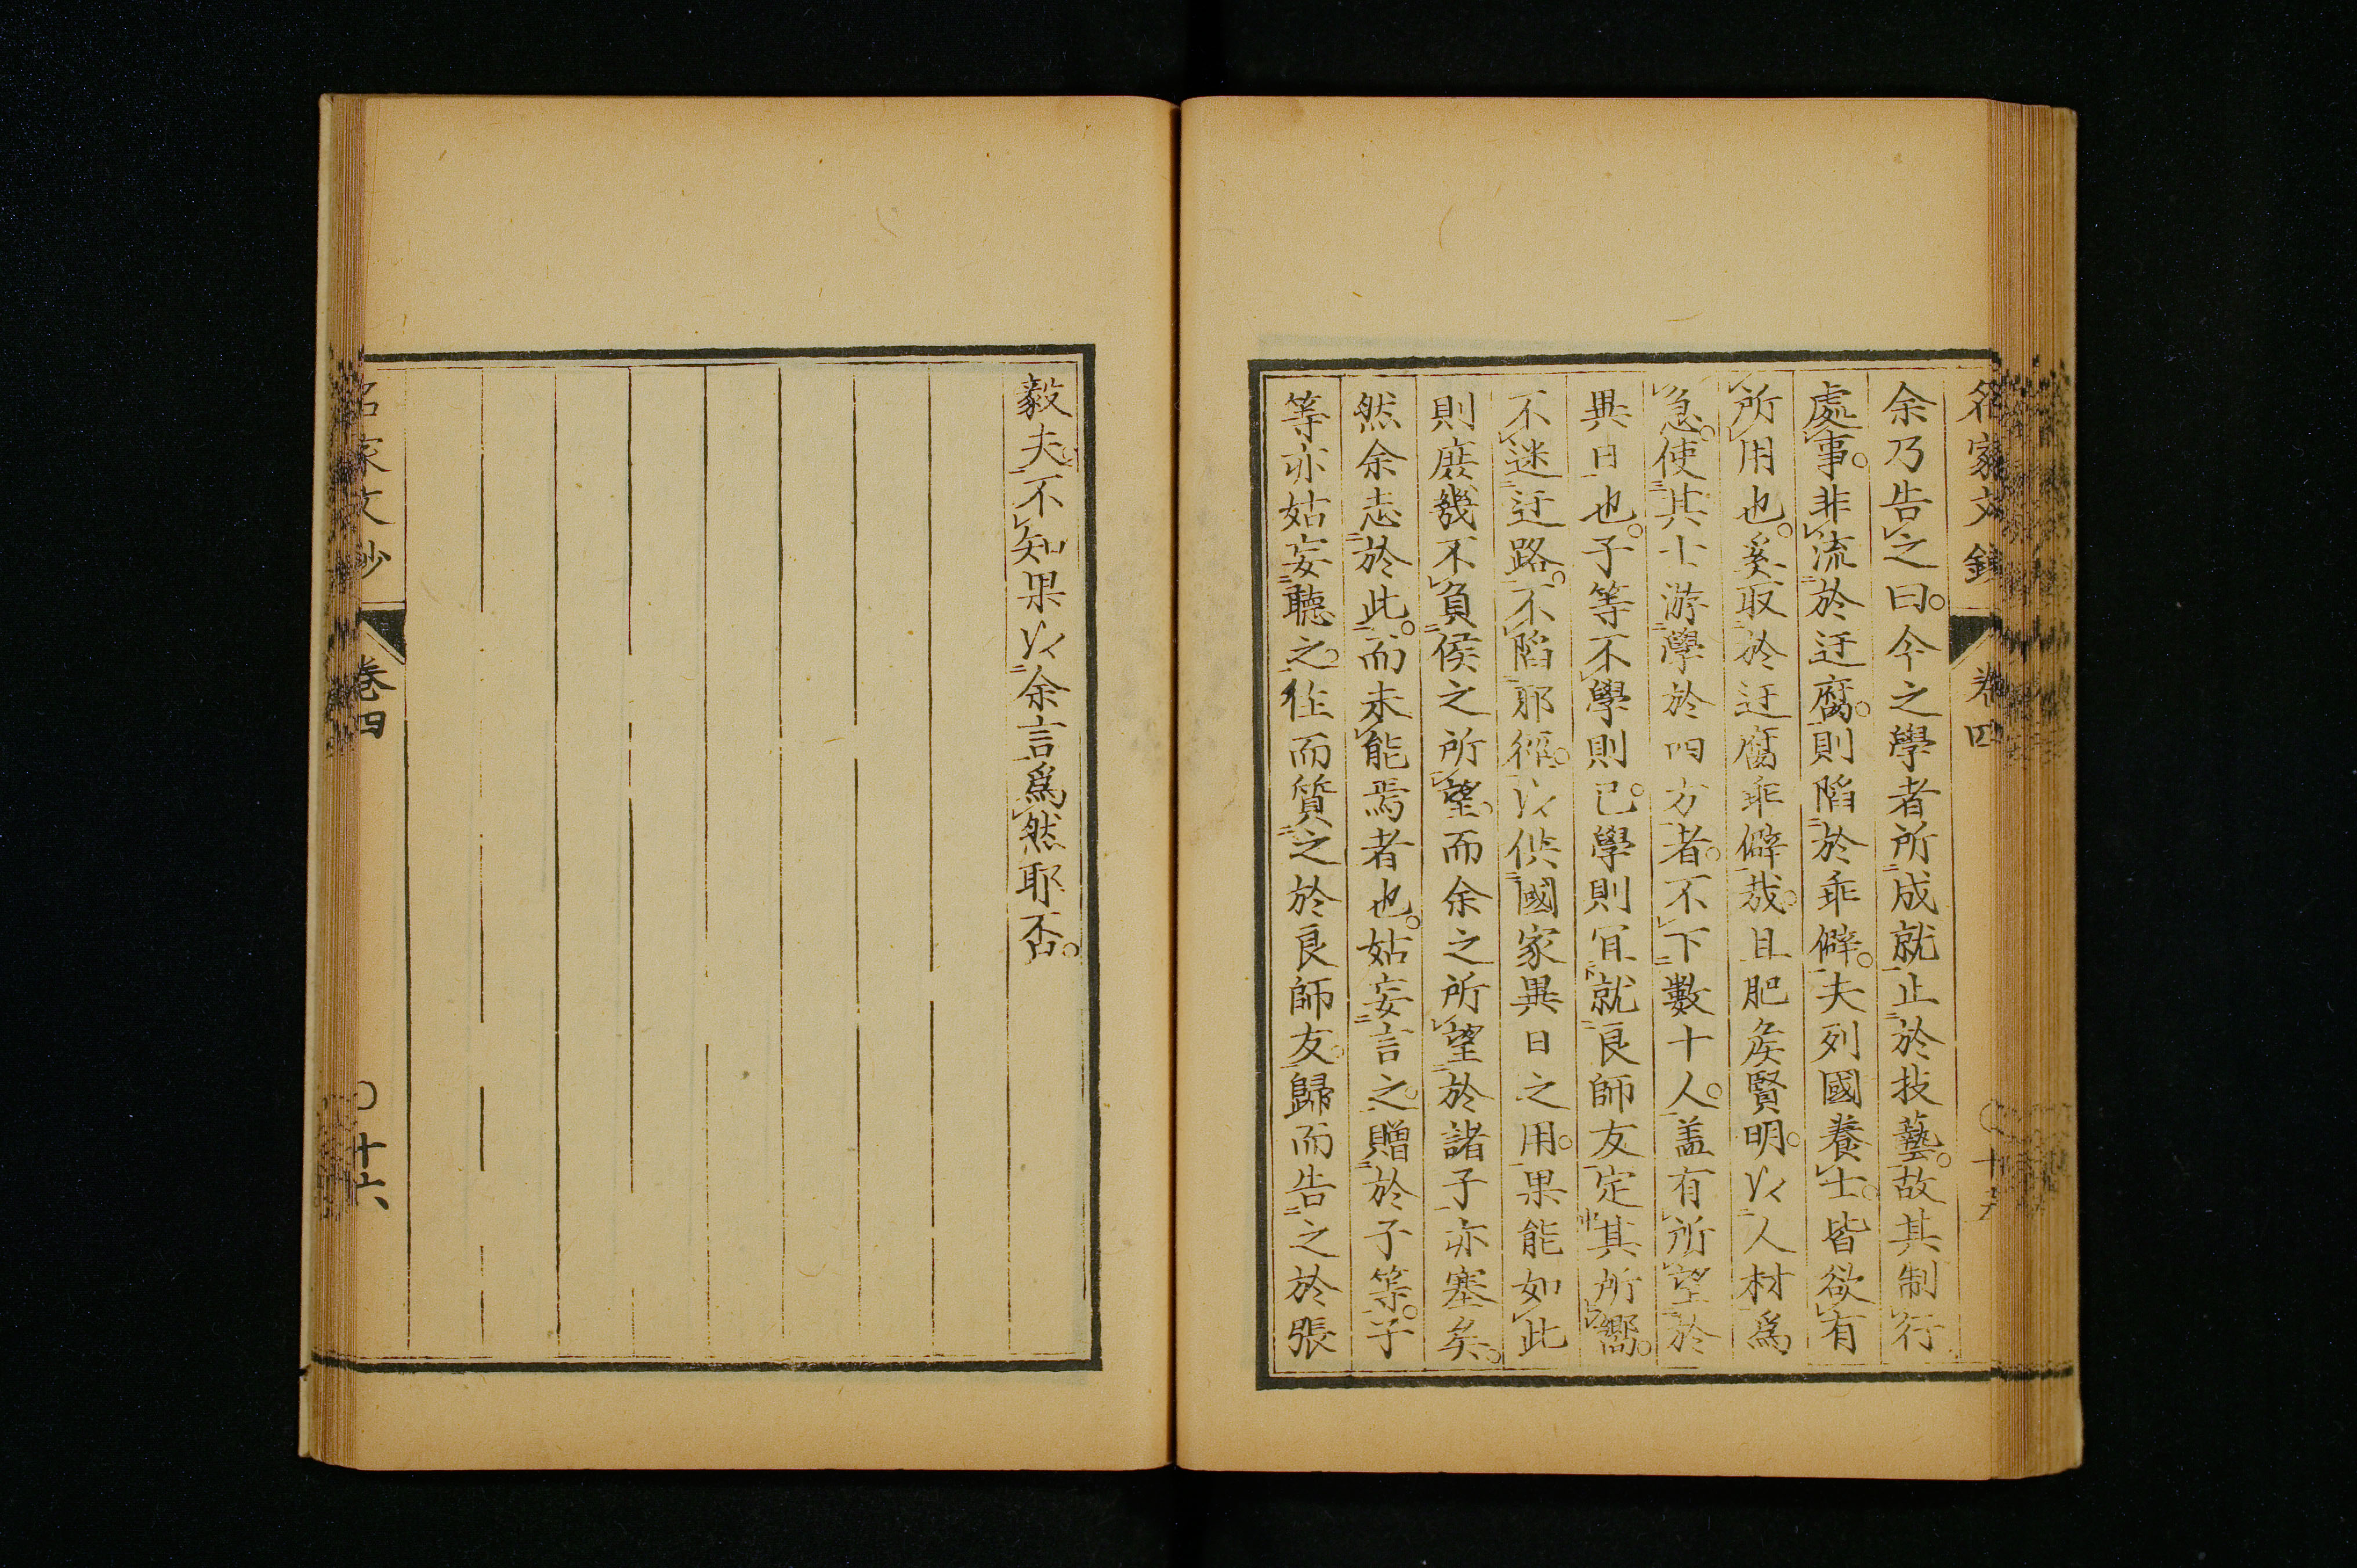 名家文鈔 卷四 十五
余乃告之曰。今之學者所成就止於技藝。故其制行
處事。非流於迂腐。則陷於乖僻。夫列國養士。皆欲有
所用也。奚取於迂腐乖僻哉。且肥矦賢明。以人材爲
急。使其士游學於四方者。不下數十人。盖有所望於
異日也。子等不學則已。學則宜就良師友定其所嚮。
不迷迂路。不陷邪徑。以供國家異日之用。果能如此
則庻幾不負侯之所望。而余之所望於諸子亦塞矣。
然余志於此。而未能焉者也。姑妄言之。贈於子等。子
等亦姑妄聽之。往而質之於良師友。歸而告之於張
毅夫。不知果以余言爲然耶否。
名家文鈔 卷四 十六